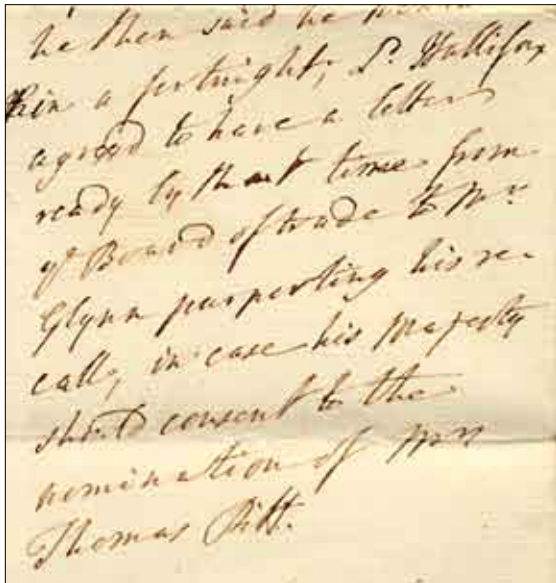 he then said he would
in a fortnight; Ld. Hallifax
agreed to have a letter
ready by that time from
ye Board of trade to Mr.
Glynn purporting his re-
call, in case his Majesty
should consent to the
nomination of Mr.
Thomas Pitt.